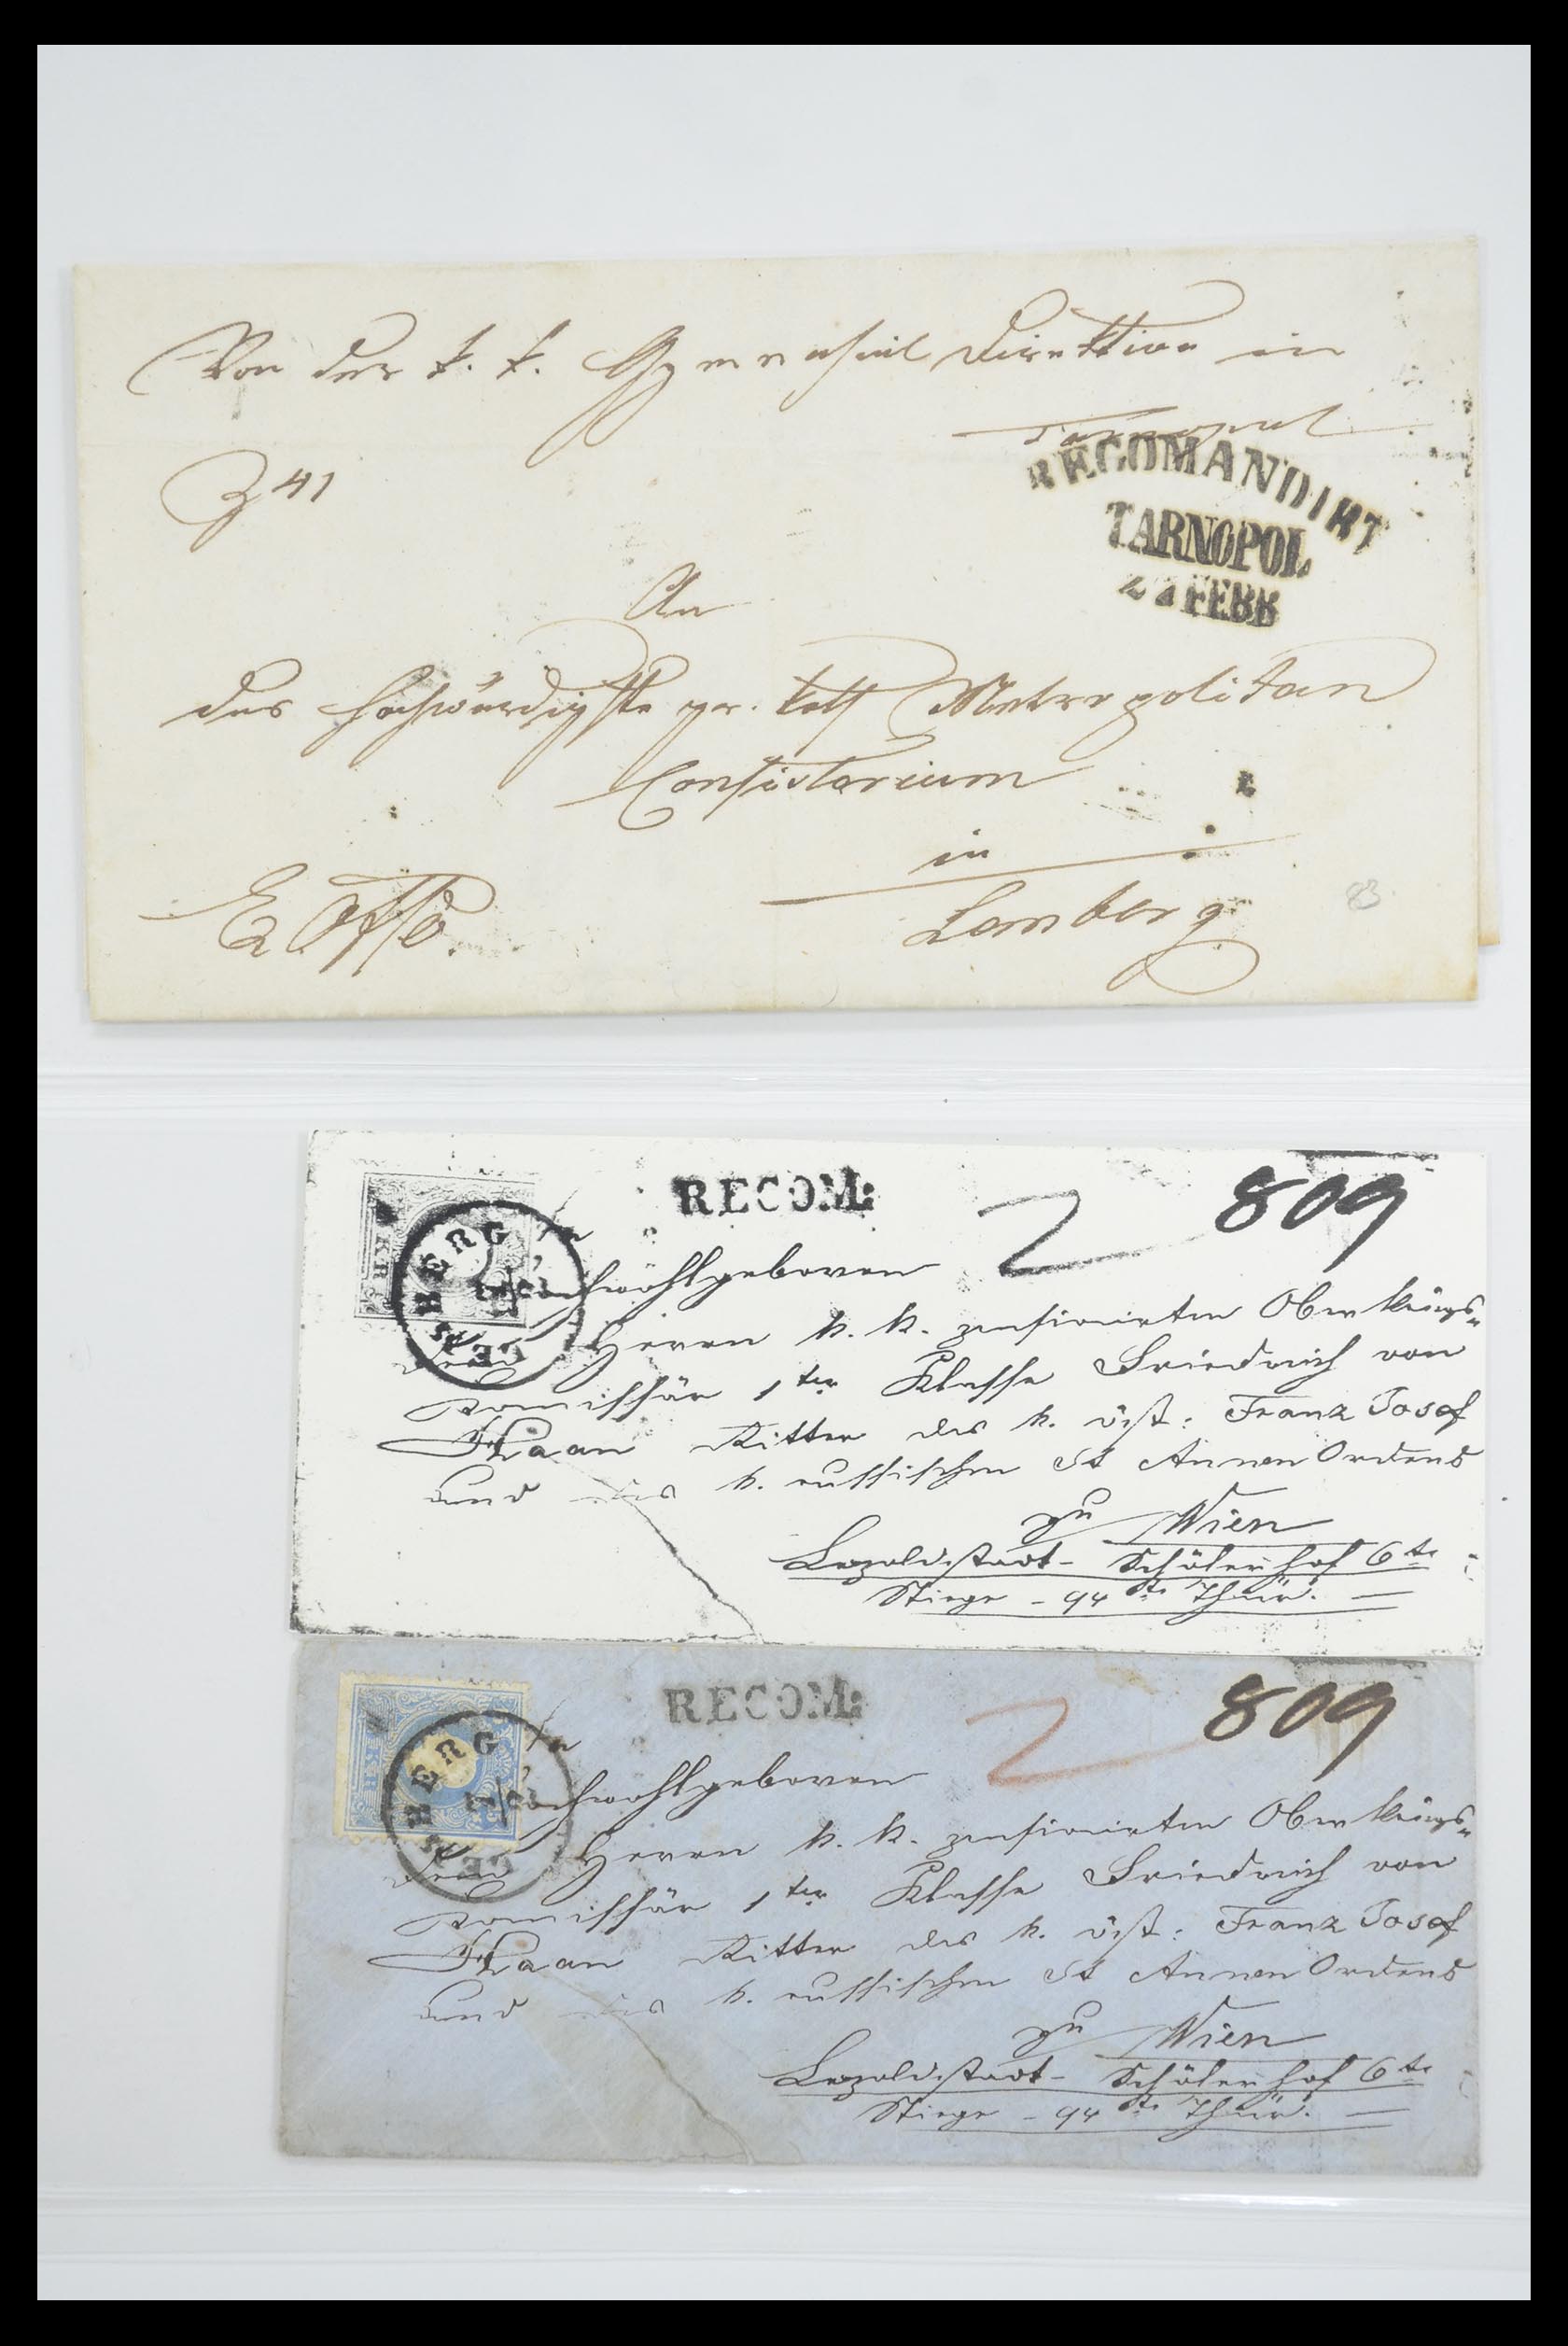 Von der k. k. Gymnasial Direktion in
Tarnopol
RECOMANDIRT
TARNOPOL
FEBR
Z 41
An
das hochwürdigste gr. kath Metropolitan
Consistorium
in
Lemberg
Ex Offo.
83
RECOM:
2
809
KR
BERG
hochwohlgeboren
Herrn k. k. pensionirten Ober Kriegs-
Komissär 1ter Klasse Friedrich von
Haan Ritter des k. öst: Franz Josef
und des k. russischen St Annen Ordens
zu Wien
Leopoldstadt - Schölerhof 6te
Stiege - 94 te Thür.
RECOM:
2
809
KR
BERG
hochwohlgeboren
Herrn k. k. pensionirten Ober Kriegs-
Komissär 1ter Klasse Friedrich von
Haan Ritter des k. öst: Franz Josef
und des k. russischen St Annen Ordens
zu Wien
Leopoldstadt - Schölerhof 6te
Stiege - 94 te Thür.